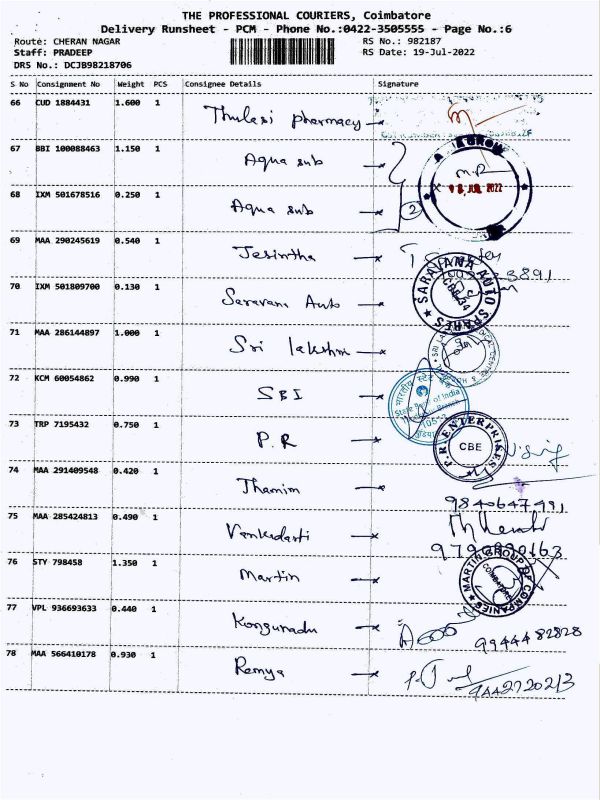 THE PROFESSIONAL COURIERS, Coimbatore
Delivery Runsheet - PCM - Phone No.:0422-3505555 - Page No.:6
Route: CHERAN NAGAR RS No.: 982187
Staff: PRADEEP RS Date: 19-Jul-2022
DRS No.: DCJB98218706
S No Consignment No Weight PCS Consignee Details Signature
66 CUD 1884431 1.600 1 Thulasi pharmacy
67 BBI 100088463 1.150 1 Aqua sub
M.D
JUL 2022
68 IXM 501678516 0.250 1 Aqua sub 2
69 MAA 290245619 0.540 1 Jesintha
70 IXM 501809700 0.130 1 Saravana Auto
SARAVANA AUTO SPARES
71 MAA 286144897 1.000 1 Sri lakshmi
72 KCM 60054862 0.990 1 SBI
भारतीय स्टेट बैंक
State Bank of India
73 TRP 7195432 0.750 1 P.R
P.R ENTERPRISES
CBE
74 MAA 291409548 0.420 1 Thamim
9840647491
75 MAA 285424813 0.490 1 Venkadasti
76 STY 798458 1.350 1 Martin
MARTIN GROUP OF COMPANIES
COIMBATORE
77 VPL 936693633 0.440 1 Kongunadu
9944482828
78 MAA 566410178 0.930 1 Remya
9442720213